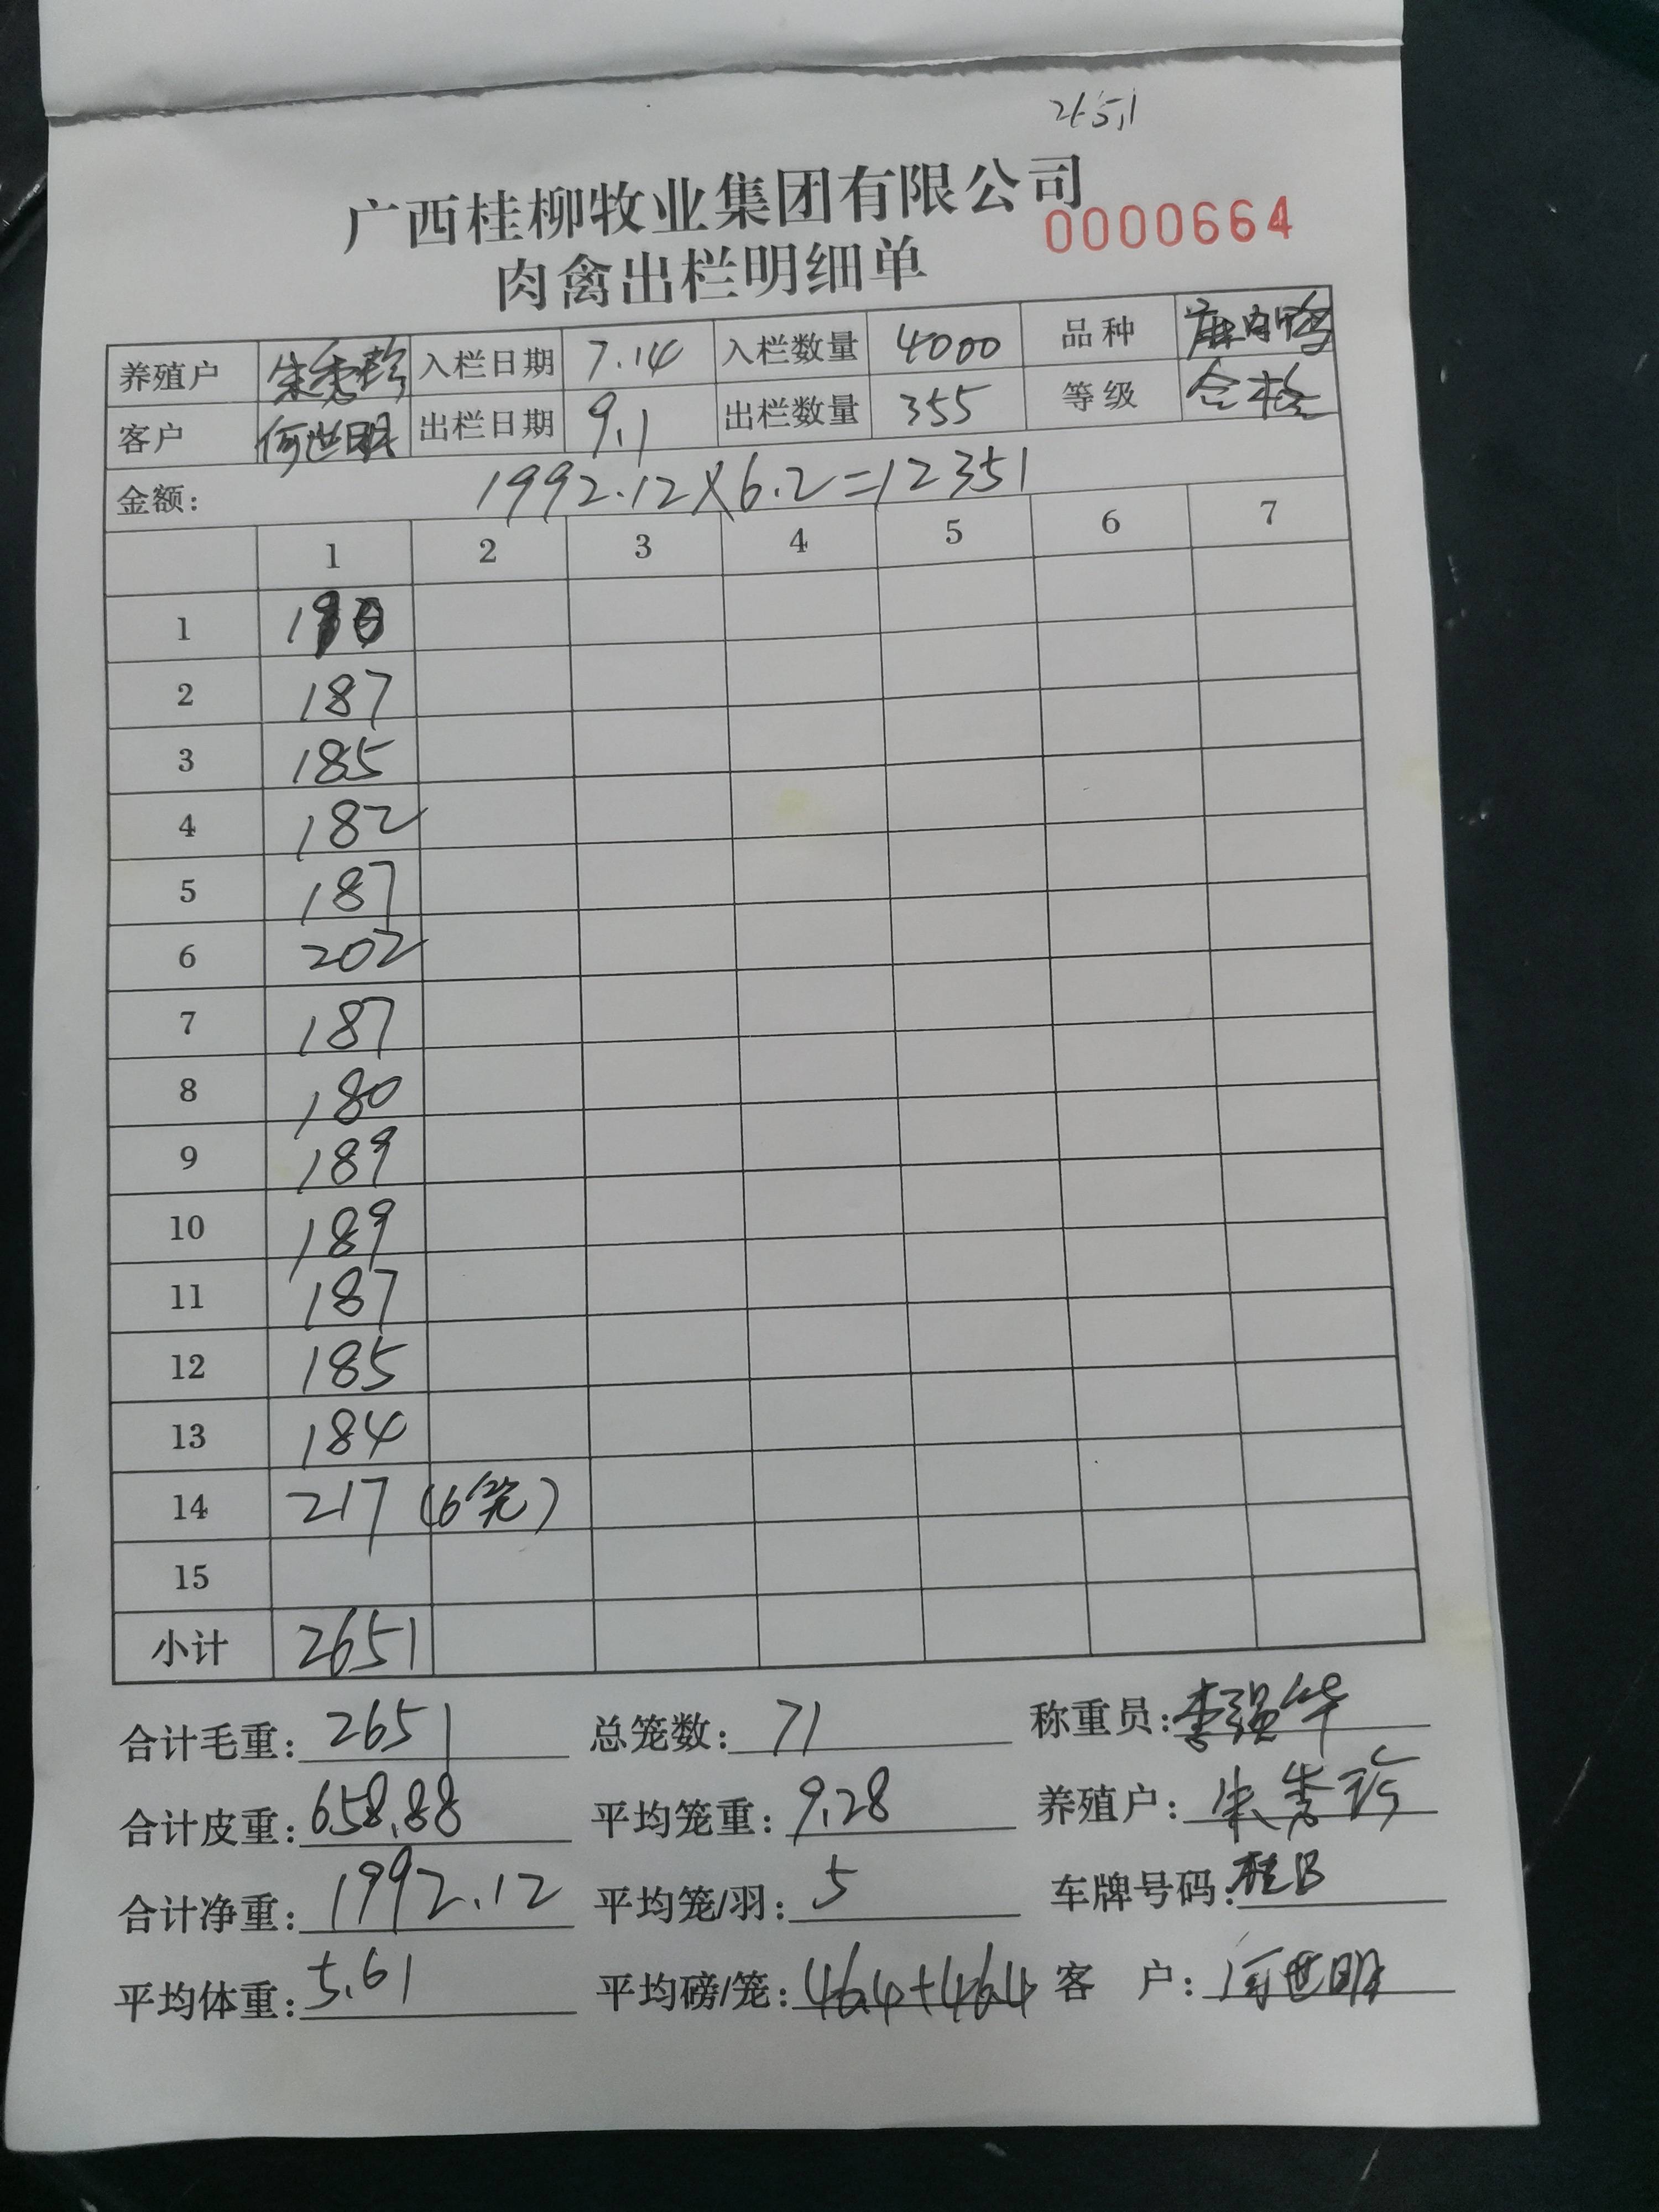 2651
广西桂柳牧业集团有限公司
0000664
肉禽出栏明细单
养殖户 朱秀珍 入栏日期 7.14 入栏数量 4000 品种 麻肉鸭
客户 何世明 出栏日期 9.1 出栏数量 355 等级 合格
金额: 1992.12×6.2=12351
1 2 3 4 5 6 7
1 190
2 187
3 185
4 182
5 187
6 202
7 187
8 180
9 189
10 189
11 187
12 185
13 184
14 217 (6笼)
15
小计 2651
合计毛重: 2651 总笼数: 71 称重员: 李强华
合计皮重: 658.88 平均笼重: 9.28 养殖户: 朱秀珍
合计净重: 1992.12 平均笼/羽: 5 车牌号码: 桂B
平均体重: 5.61 平均磅/笼: 46.4+46.4 客 户: 何世明